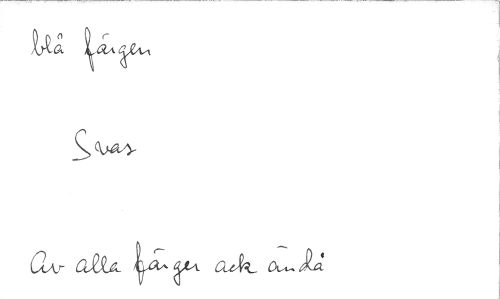 blå färgen
Svas
Av alla färger ack ändå